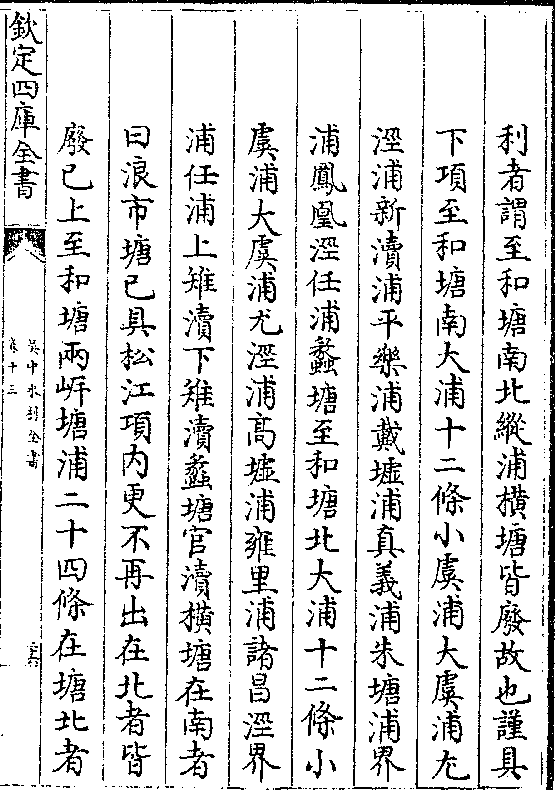 利者謂至和塘南北縱浦橫塘皆廢故也謹具
下項至和塘南大浦十二條小虞浦大虞浦尤
涇浦新瀆浦平樂浦戴墟浦真義浦朱塘浦界
浦鳳凰涇任浦蠡塘至和塘北大浦十二條小
虞浦大虞浦尤涇浦高墟浦雍里浦諸昌涇界
浦任浦上雉瀆下雉瀆蠡塘官瀆橫塘在南者
曰浪市塘已具松江項内更不再出在北者皆
廢已上至和塘兩岍塘浦二十四條在塘北者
欽定四庫全書
吳中水利全書
卷十三